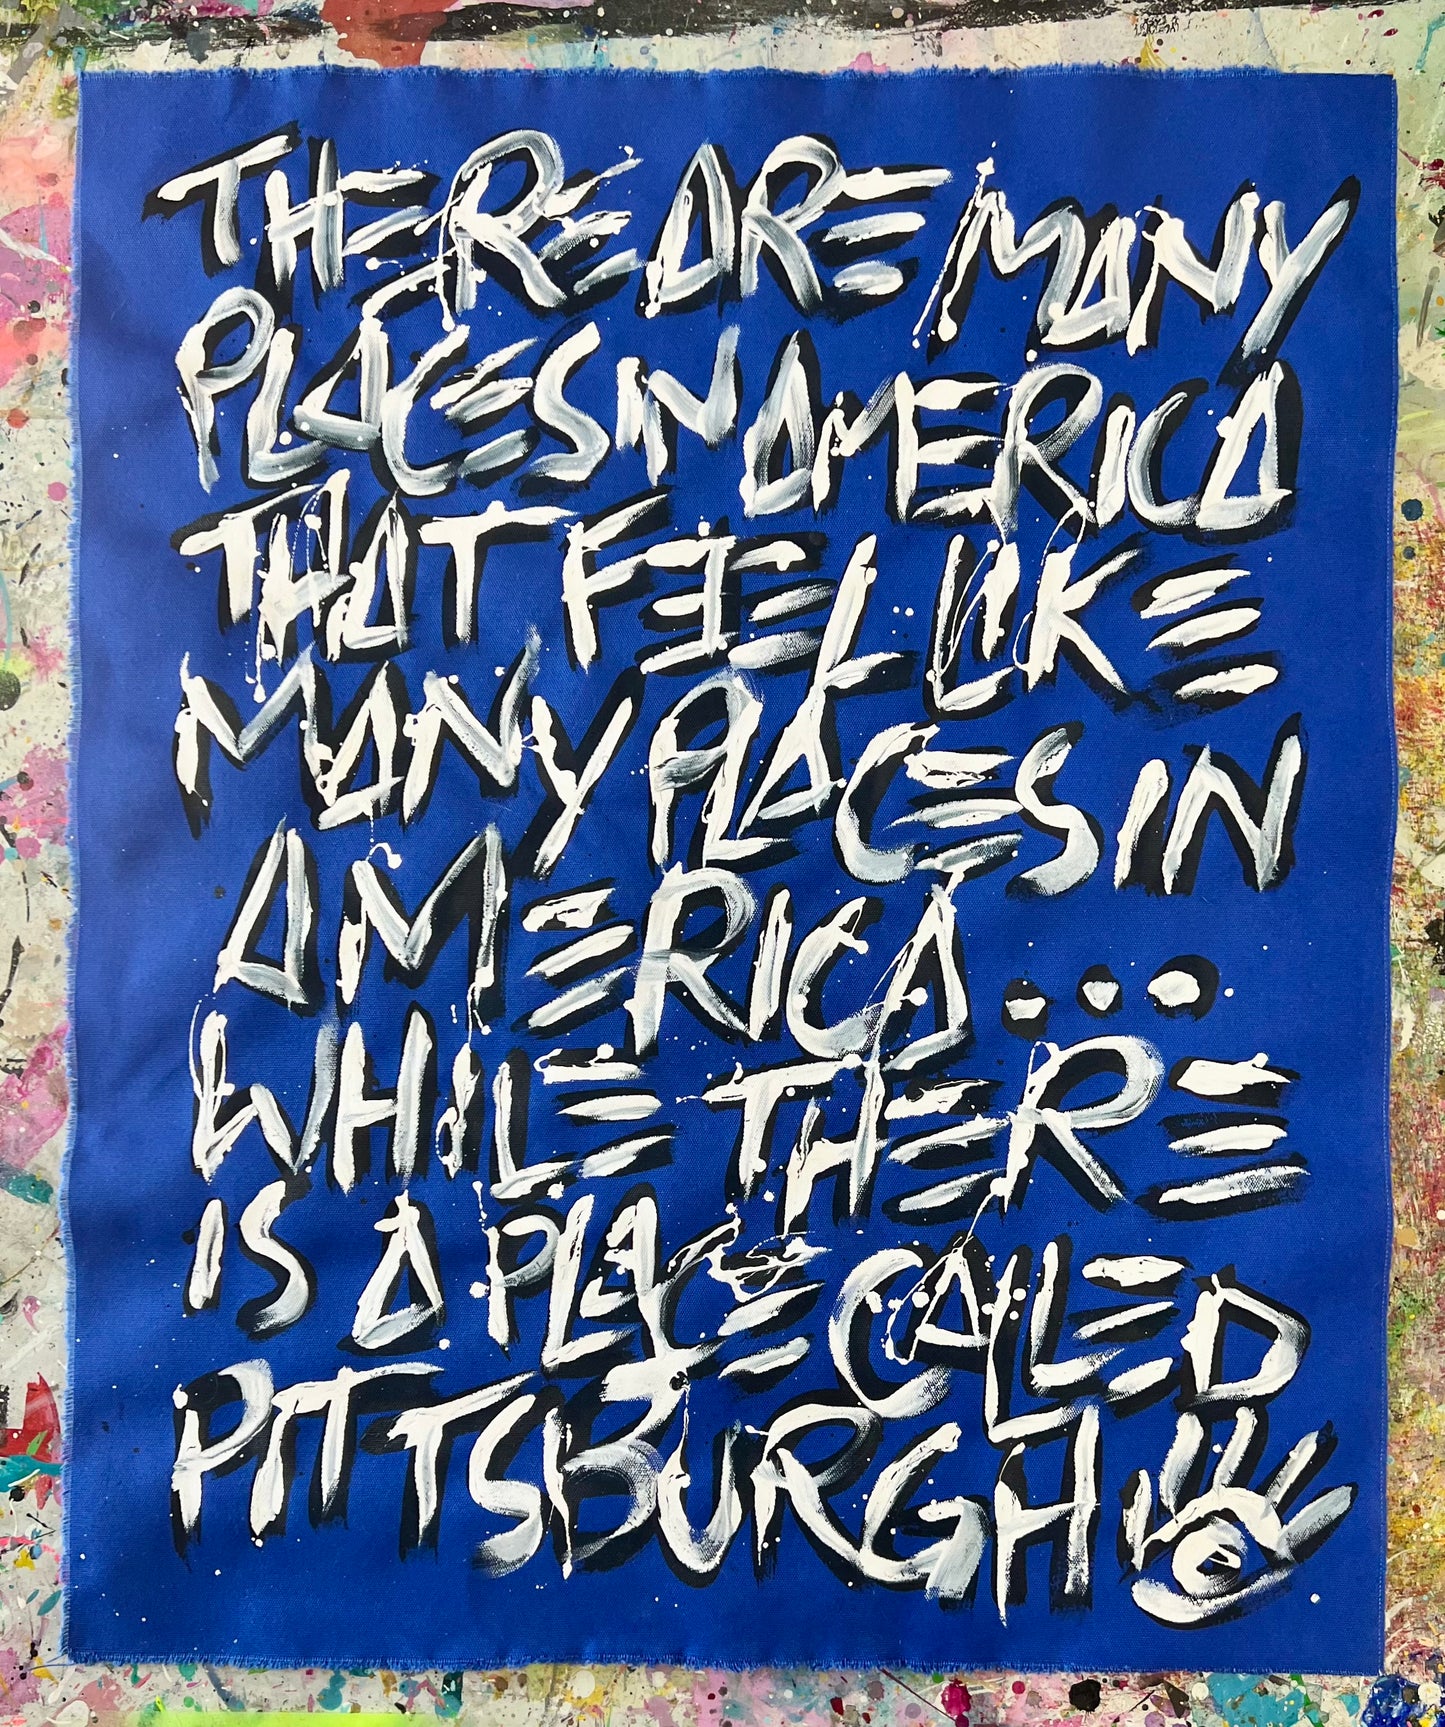 THERE ARE MANY
PLACES IN AMERICA
THAT FEEL LIKE
MANY PLACES IN
AMERICA...
WHILE THERE
IS A PLACE CALLED
PITTSBURGH